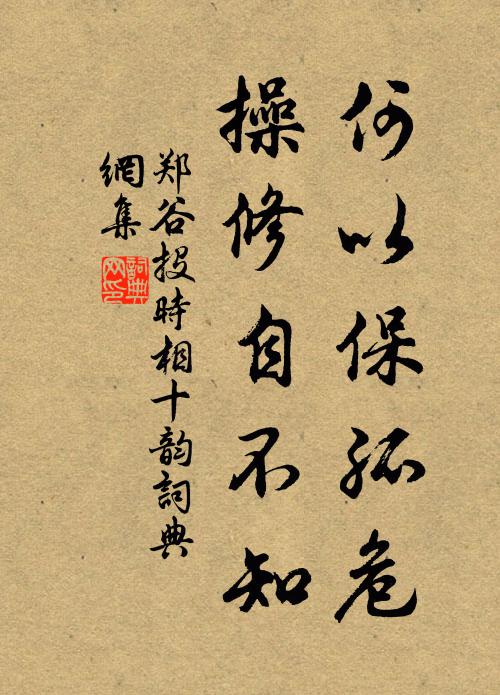 何以保孤危
操修自不知
郑谷投时相十韵詞典
網集
詞典網印